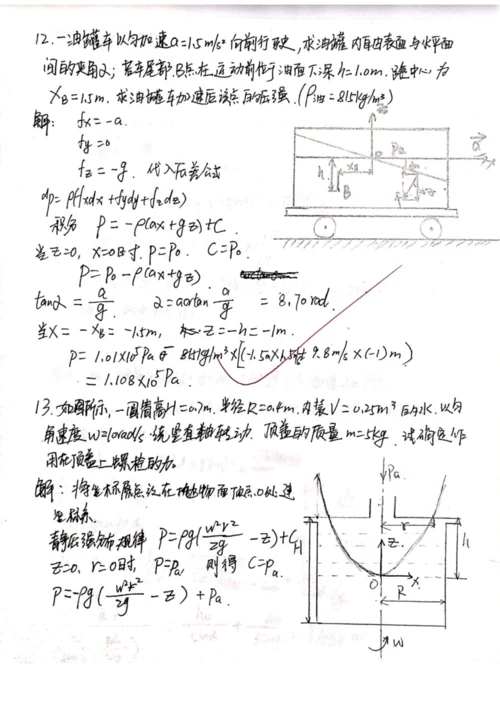 12.一油罐车以匀加速a=1.5m/s²向前行驶,求油罐内自由表面与水平面
间的夹角α;若车尾部B点在运动前位于油面下深h=1.0m.距中心为
X_B=1.5m.求油罐车加速后该点的压强.(ρ油=815kg/m³)
解: fx=-a.
fy=0
fz=-g. 代入压差公式
dp=ρ(fxdx+fydy+fzdz)
积分 P=-ρ(ax+gz)+C.
当Z=0,X=0时.P=P₀. C=P₀.
P=P₀-ρ(ax+gz).
tanα=a/g α=arctan a/g =8.70rad.
当X=-X_B=-1.5m, Z=-h=-1m.
P=1.01×10⁵Pa 815kg/m³×[(-1.5 9.8m/s×(-1)m)
=1.108×10⁵Pa.
h X_B B a
13.如图所示,一圆筒高H=0.7m.半径R=0.4m.内装V=0.25m³的水.以匀
角速度w=10rad/s.绕竖直轴转动.顶盖的质量m=5kg.试确定作
用在顶盖上螺栓的力.
解:将坐标原点设在抛物面顶点O处建
坐标系.
静压强分布规律 P=ρg(w²r²/2g-z)+C
Z=0, r=0时. P=Pa, 则得 C=Pa.
P=-ρg(w²r²/2g-z)+Pa.
Pa. r z h H O x R w